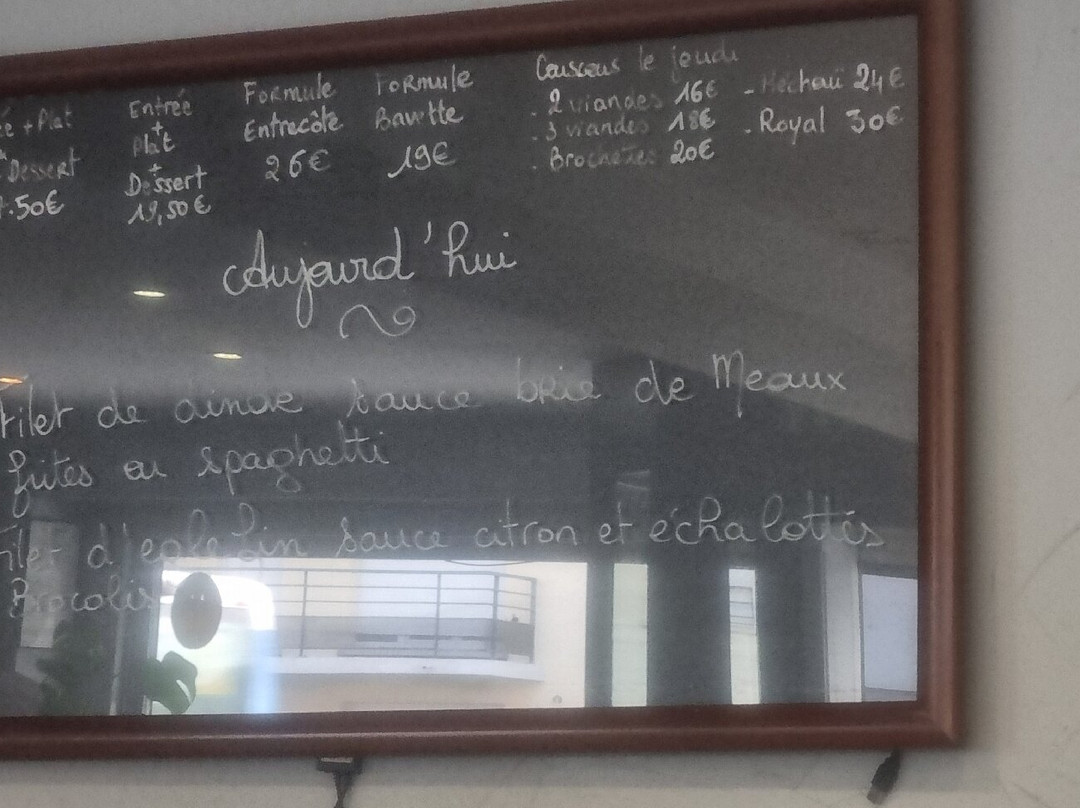 ée + Plat
Dessert
.50€
Entrée
+
Plat
+
Dessert
19,50€
Formule
Entrecôte
26€
Formule
Bavette
19€
Couscous le jeudi
. 2 viandes 16€
. 3 viandes 18€
. Brochettes 20€
- Méchoui 24€
. Royal 30€
Aujourd'hui
Filet de dinde sauce brie de Meaux
frites ou spaghetti
Filet d'eglefin sauce citron et échalottes
Brocolis